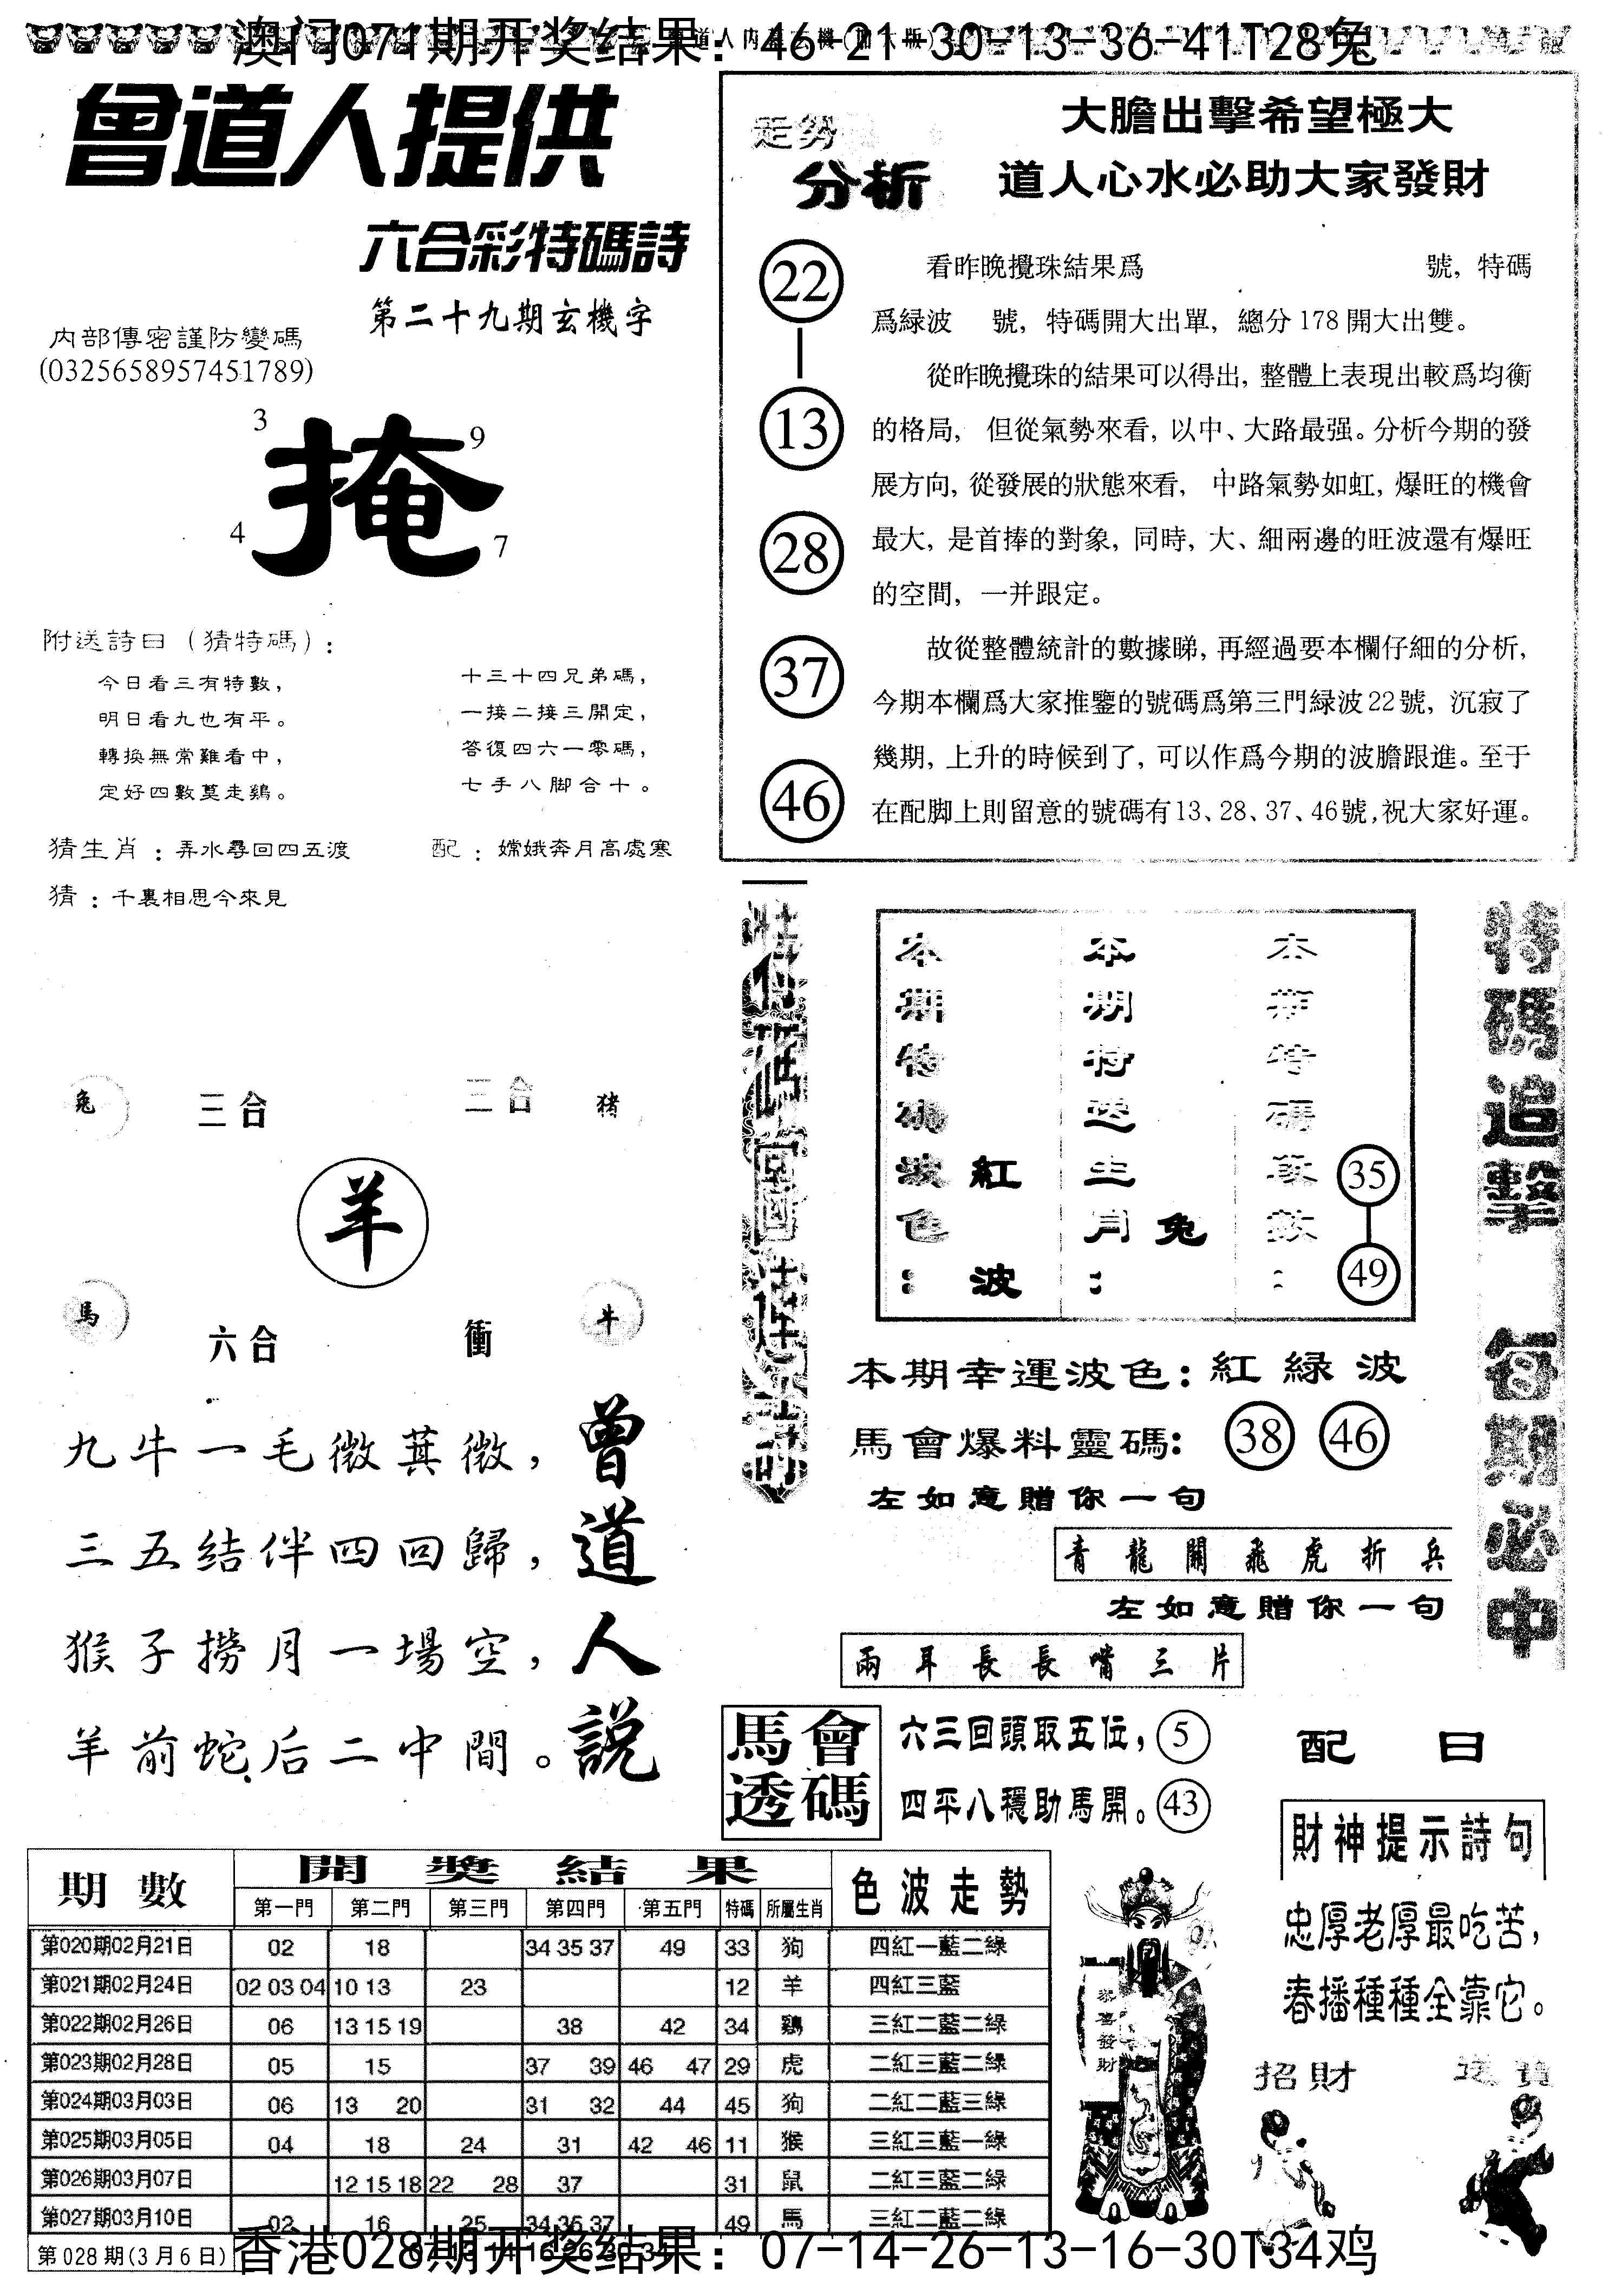 澳门071期开奖结果：46-21-30-13-36-41T28兔
曾道人提供
六合彩特碼詩
第二十九期玄機字
内部傳密謹防變碼
(0325658957451789)
3
9
掩
4
7
附送詩曰（猜特碼）:
今日看三有特數，
明日看九也有平。
轉換無常難看中，
定好四數莫走鷄。
十三十四兄弟碼，
一接二接三開定，
答復四六一零碼，
七手八脚合十。
猜生肖：弄水尋回四五渡
配：嫦娥奔月高處寒
猜：千裏相思今來見
走勢
分析
大膽出擊希望極大
道人心水必助大家發財
22
13
28
37
46
看昨晚攪珠結果爲 號，特碼
爲緑波 號，特碼開大出單，總分178開大出雙。
從昨晚攪珠的結果可以得出，整體上表現出較爲均衡
的格局，但從氣勢來看，以中、大路最强。分析今期的發
展方向，從發展的狀態來看，中路氣勢如虹，爆旺的機會
最大，是首捧的對象，同時，大、細兩邊的旺波還有爆旺
的空間，一并跟定。
故從整體統計的數據睇，再經過要本欄仔細的分析，
今期本欄爲大家推鑒的號碼爲第三門緑波22號，沉寂了
幾期，上升的時候到了，可以作爲今期的波膽跟進。至于
在配脚上則留意的號碼有13、28、37、46號，祝大家好運。
兔
三合
三合
猪
羊
馬
六合
衝
牛
九牛一毛微其微，
三五结伴四回歸，
猴子撈月一場空，
羊前蛇后二中間。
曾道人説
本期特碼波色：紅波
本期特送生肖：兔
本期特碼段數：35 49
特碼追擊 每期必中
本期幸運波色：紅緑波
馬會爆料靈碼：38 46
左如意贈你一句
青龍關飛虎折兵
左如意贈你一句
兩耳長長嘴三片
馬會透碼
六三回頭取五位，5
四平八穩助馬開。43
配曰
財神提示詩句
忠厚老厚最吃苦，
春播種種全靠它。
恭喜發財
招財
送寶
期數 開獎結果 色波走勢
第一門 第二門 第三門 第四門 第五門 特碼 所屬生肖
第020期02月21日 02 18 34 35 37 49 33 狗 四紅一藍二緑
第021期02月24日 02 03 04 10 13 23 12 羊 四紅三藍
第022期02月26日 06 13 15 19 38 42 34 鷄 三紅二藍二緑
第023期02月28日 05 15 37 39 46 47 29 虎 二紅三藍二緑
第024期03月03日 06 13 20 31 32 44 45 狗 二紅二藍三緑
第025期03月05日 04 18 24 31 42 46 11 猴 三紅三藍一緑
第026期03月07日 12 15 18 22 28 37 31 鼠 二紅三藍二緑
第027期03月10日 02 16 25 34 36 37 49 馬 三紅二藍二緑
第028期(3月6日)
香港028期开奖结果：07-14-26-13-16-30T34鸡